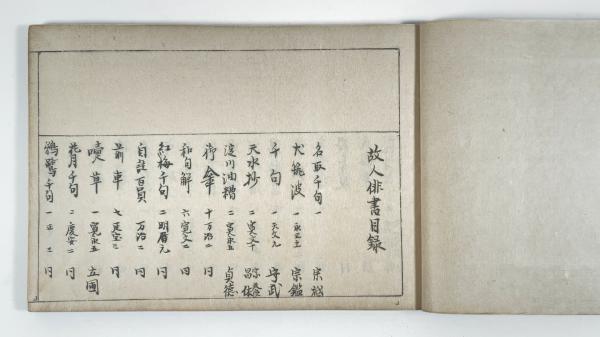 故人俳書目録
名取千句 一 宗祇
犬筑波 一 宗鑑
千句 一 天文九 守武
天水抄 二 寛文十
淀川油糟 二 寛永五 貞徳
御傘 十 万治二 同
和句解 六 寛文二 同
紅梅千句 二 明暦元 同
自註百員 万治二 同
前車 七 延宝三 同
嚏草 一 寛永五 立圃
花月千句 二 慶安二 同
鴉鷺千句 一 正 同